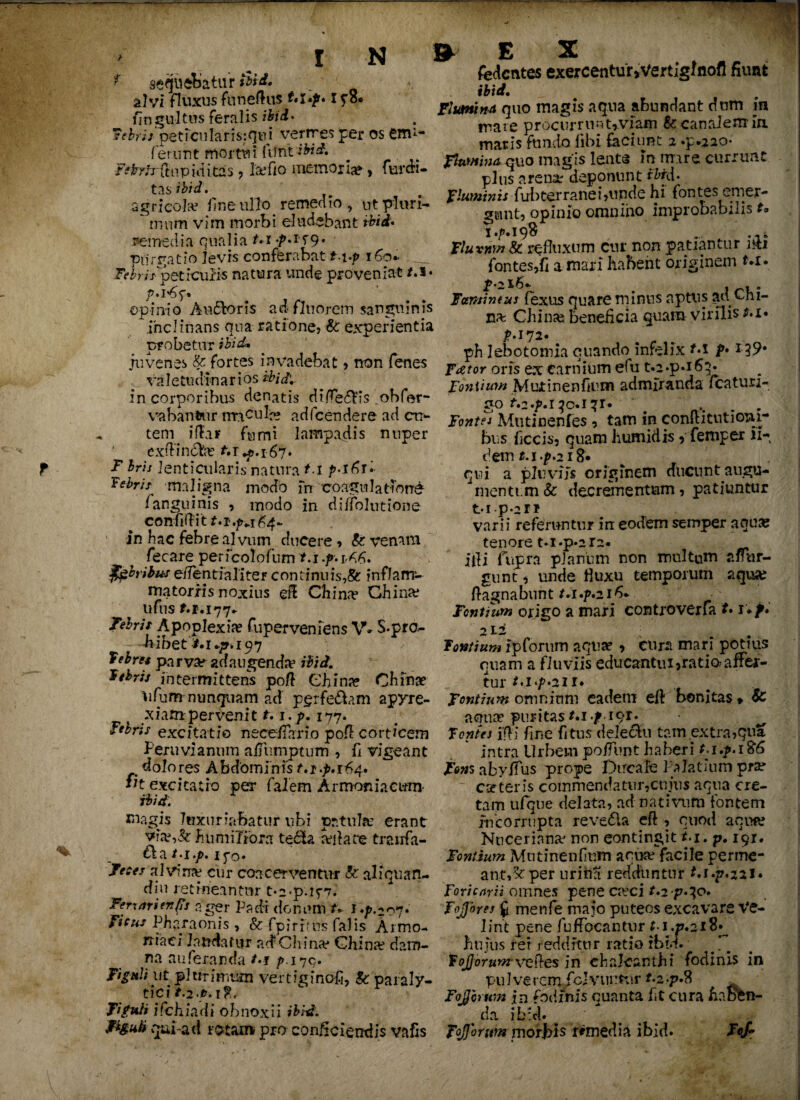 I N D E X
sequebatur ibid.
alvi fluxus funestus t.1.p. 158.
singultus feralis ibid.
Febris peticularis:qui vermes per os emi-
serunt mortui sunt ibid.
Febris stupiditas, læsio memoriæ, surdi-
tas ibid.
agricolæ sine ullo remedio, ut pluri-
mum vim morbi eludebant ibid.
remedia qualia t.1.p.159.
purgatio levis conferabat t.1.p 160.
Febris peticuris natura unde proveniat t.1.
p.165.
opinio Auctoris ad fluorem sanguinis
inclinans qua ratione, & experientia
probetur ibid.
juvenes & fortes invadebat, non senes
valetudinarios ibid.
in corporibus denatis dissectis obser-
vabantur maculæ adscendere ad cu-
tem instar fumi lampadis nuper
exstinctæ t.1.p.167.
F bris lenticularis natura t.1 p.161.
Febris maligna modo in coagulatione
sanguinis, modo in dissolutione
consistit t.1.p.164.
in hac febre alvum ducere, & venam
secare periculosum t.1.p.166.
Febribus essentialiter continuis,& inflam-
matoriis noxius est Chinæ Chinæ
usus t.1.177.
Febris Apoplexiæ superveniens V. S.pro-
hibet t.1.p.197
Febres parvæ adaugendæ ibid.
Febris intermittens post Chinæ Chinæ
usum nunquam ad perfectam apyre-
xiam pervenit t. 1. p. 177.
Febris excitatio necessario post corticem
Peruvianum assumptum, si vigeant
dolores Abdominis t.1.p.164.
fit excitatio per salem Armoniacum
ibid.
magis luxuriabatur ubi patulæ erant
viæ,& humiliora tecta æstate transa-
cta t.1.p. 150.
Feces alvinæ cur coacerventur & aliquan-
diu retineantur t.2.p.157.
Ferrariensis ager Padi donum t. 1.p.207.
Ficus Pharaonis, & spiritus salis Armo-
niaci laudatur ad Chinæ Chinæ dam-
na auferanda t.1 p.179.
Figuli ut plurimum vertiginosi, & paraly-
tici t.2.p.18.
Figuli ischiadi obnoxii ibid.
Figuli qui-ad rotam pro conficiendis vasis
sedentes exercentur,vertiginosi fiunt
ibid.
Flumina quo magis aqua abundant dum in
mare procurrunt,viam & canalem in
maris fundo sibi faciunt 2.p.220.
Flumina quo magis lenta in mare currunt
plus arenæ deponunt ibid.
Fluminis subterranei,unde hi fontes emer-
gunt, opinio omnino improbabilis t.
1.p.198
Fluxum & refluxum cur non patiantur isti
fontes,si a mari habent originem t.1.
p.216.
Fœmineus sexus quare minus aptus ad Chi-
næ Chinæ beneficia quam virilis t.1.
p.172.
phlebotomia quando infelix t.1 p. 139.
Fœtor oris ex carnium esu t.2.p.163.
Fontium Mutinensium admiranda scaturi-
go t.2.p.130.131.
Fontes Mutinenses, tam in constitutioni-
bus siccis, quam humidis, semper ii-
dem t.1.p.218.
qui a pluviis originem ducunt augu-
mentum & decrementum, patiuntur
t.1 p.211
varii referuntur in eodem semper aquæ
tenore t.1.p.212.
isti supra planum non multum assur-
gunt, unde fluxu temporum aquæ
stagnabunt t.1.p.216.
Fontium origo a mari controversa t. 1.p.
212
Fontium ipsorum aquæ, cura mari potius
quam a fluviis educantur,ratio affer-
tur t.1.p.211.
Fontium omnium eadem est bonitas, &
aquæ puritas t.1.p.191.
Fontes isti sine situs delectu tam extra,qua
intra Urbem possunt haberi t.1.p.186
Fons abyssus prope Ducale Palatium præ
cæteris commendatur,cujus aqua cre-
tam usque delata, ad nativum fontem
incorrupta revecta est, quod aquæ
Nuceriana non contingit t.1. p. 191.
Fontium Mutinensium aquæ facile perme-
ant,& per urina redduntur t.1.p.221.
Foricarii omnes pene cæci t.2.p.30.
Fossores si mense majo puteos excavare ve-
lint pene suffocantur t.1.p.218.
hujus rei redditur ratio ibid.
Fossorum vestes in chalcanthi fodinis in
pulverem solvuntur t.2.p.8
Fossorum in fodinis quanta sit cura haben-
da ibid.
Fossorum morbis remedia ibid.
Fos-